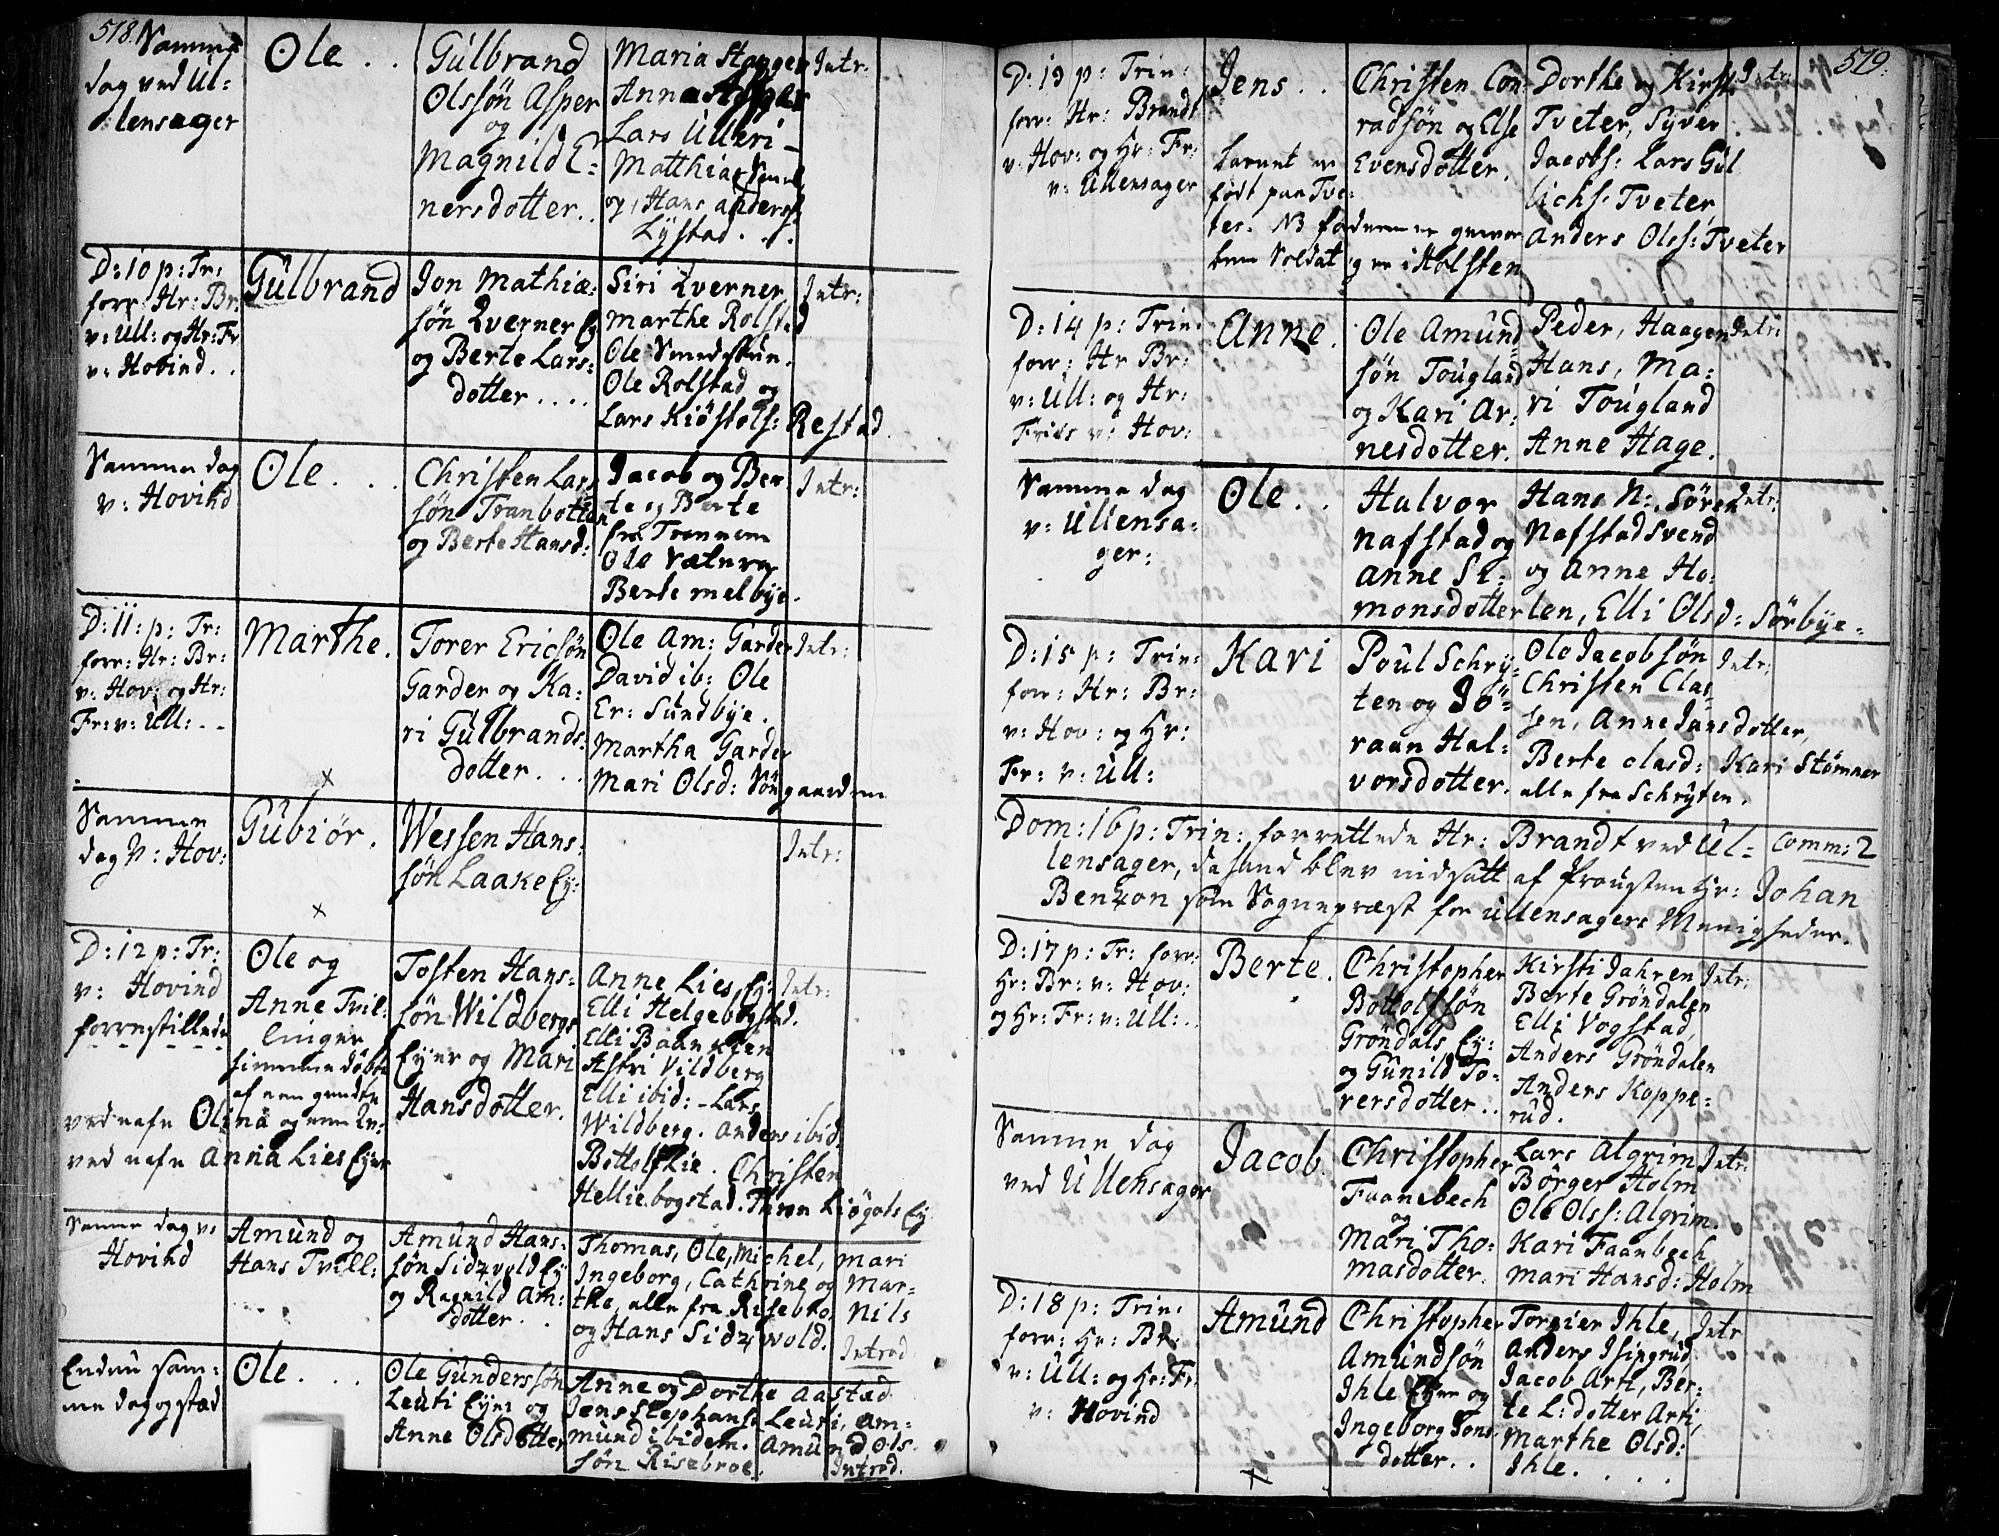 518.
Samme
dag ved Ul=
lensager
Ole . .
Gülbrand
Olssön Asper
og
Magnild E=
nersdotter..
Maria Stanger
Anna Asper
Lars Ulleri
Matthias
og Hans anderss
Lystad . . .
Intr:
D: 10 p: Tr:
forr: Hr: Br:
v: Ull: og Hr: Fr
v: Hovind . .
Gülbrand
Jon Mathiæ=
søn Qverner Ey
og Berte Lars=
dotter . . . .
Siri Qverner
Marthe Rolstad
Ole
Ole Rolstad og
Lars Kiöstols: Restad
Intr:
Samme dag
v: Hovind
Ole . . .
Christen Lars
søn Tranbotten
og Berte Hansd:
Jacob og Ber
te og Berte
fra
Ole
Berte melbye.
Intr:
D: 11: p: Tr:
forr: Hr: Br:
v: Hov: og Hr:
Fr: v: Ull: - -
Marthe.
Torer Ericsøn
Garder og Ka=
ri Gülbrands=
dotter . . .
Ole Am: Garder
David ib: Ole
Er: Sundbye.
Martha Garder
Mari Olsd: Söngaarden
Intr:
Samme
dag v: Hov:
Gübiør.
Wessen Hans=
søn Laake Ey:
Intr:
D: 12 p: Tr:
v: Hovind
forrestillede
Ole og
Anne Tvil=
linger
hiemmedöbte
af een
ved nafn Olina og een
ved nafn Anna Lies Eyer
Tosten Hans=
søn Wildbergs
Eyer og Mari
Hansdotter.
Anne Lies Ey:
Elli Helgebogstad.
Elli
Astri Vildberg
Elli ibid: - Lars
Wildberg. Anders ibid.
Bottolf Lie. Christen
Helliebogstad. Thron Liögots Ey
Intr:
Samme dag v:
Hovind
Amünd og
Hans Tvill:
Amünd Hans=
søn Sidzvold Ey
og Ragnild Am=
dotter . .
Thomas, Ole, Michel, Mari
Ingeborg, Cathrine og Mar=
the, alle fra Risebro, Nils
og Hans Sidzwold.
Introd.
Endnu sam=
me dag og stæd
Ole. . . .
Ole Gunderssøn
Leuti Eyer og
Anne Olsdotter
Anne og Dorthe Aastad
Jens Stephans: Leuti, Am=
mund ibidem. Amünd Ols=
søn Risebroe.
Introd.
519.
D: 13 p: Trin:
forr: Hr: Brandt
v: Hov: og Hr: Fr:
v: Ullensager
Jens . .
Barnet er
födt paa Tve=
ter. NB faderen er gevor
ben Soldat og er i Holsten
Christen Con
radsøn og Else
Evensdotter.
Dorthe og Kirsti
Tveter, Syver
Jacobs: Lars Gül
lichs: Tveter,
Anders Olss: Tveter
Intr:
D: 14 p: Trin:
forr: Hr Br:
v: Ull: og Hr:
Friis v: Hov:
Anne.
Ole Amünd=
søn Tougland
og Kari Ar=
nesdotter.
Peder, Haagen
Hans, Ma=
ri Tougland
Anne Hage.
Intr:
Samme dag
v: Ullensa=
ger:
Ole . .
Halvor
Nafstad og
Anne Si=
monsdotter
Hans N:, Søren
Nafstad Svend
og Anne Ho=
len, Elli Olsd: Sörbye.
Intr:
D: 15 p: Trin:
forr: Hr: Br:
v: Hov: og Hr:
Fr: v: Ull:
Kari
Poul Schry=
ten og Jö=
raan Hal=
vorsdotter.
Ole Jacobsøn
Christen Clas
sen, Anne Jansdotter,
Berte Clasd: Kari Stömner
alle fra Schryten.
Intr:
Dom: 16 p: Trin: forrettede Hr: Brandt ved Ul=
lensager, da hand blev indsatt af Prousten Hr: Johan
Benzon som Sognepræst for Ullensagers Menigheder.
Comm: 2
D: 17 p: Tr: forr:
Hr: Br: v: Hov:
og Hr: Fr: v: Ull: . .
Berte.
Christopher
Bottolfsøn
Gröndals Ey:
og Günild To=
rersdotter . .
Kirsti Jahren
Berte Gröndalen
Elli Vogstad,
Anders Gröndalen
Anders Koppe=
rüd.
Intr:
Samme dag
ved Ullensager
Jacob
Christopher
Faanebech
og
Mari Tho=
masdotter.
Lars Algrim
Börger Holm
Ole Olss: Algrim.
Kari Faanbech
Mari Hansd: Holm
Intr:
D: 18 p: Trin:
forr: Hr: Br:
v: Ull: og Hr: Fr:
v: Hovind
Amünd
Christopher
Amündsøn
Ihle Eyer og
Ingeborg Jons
dotter . .
Torgier Ihle,
Anders Isingrud
Jacob Arti, Ber=
te L: dotter Arti,
Marthe Olsd:
Ihle. . . .
Intr